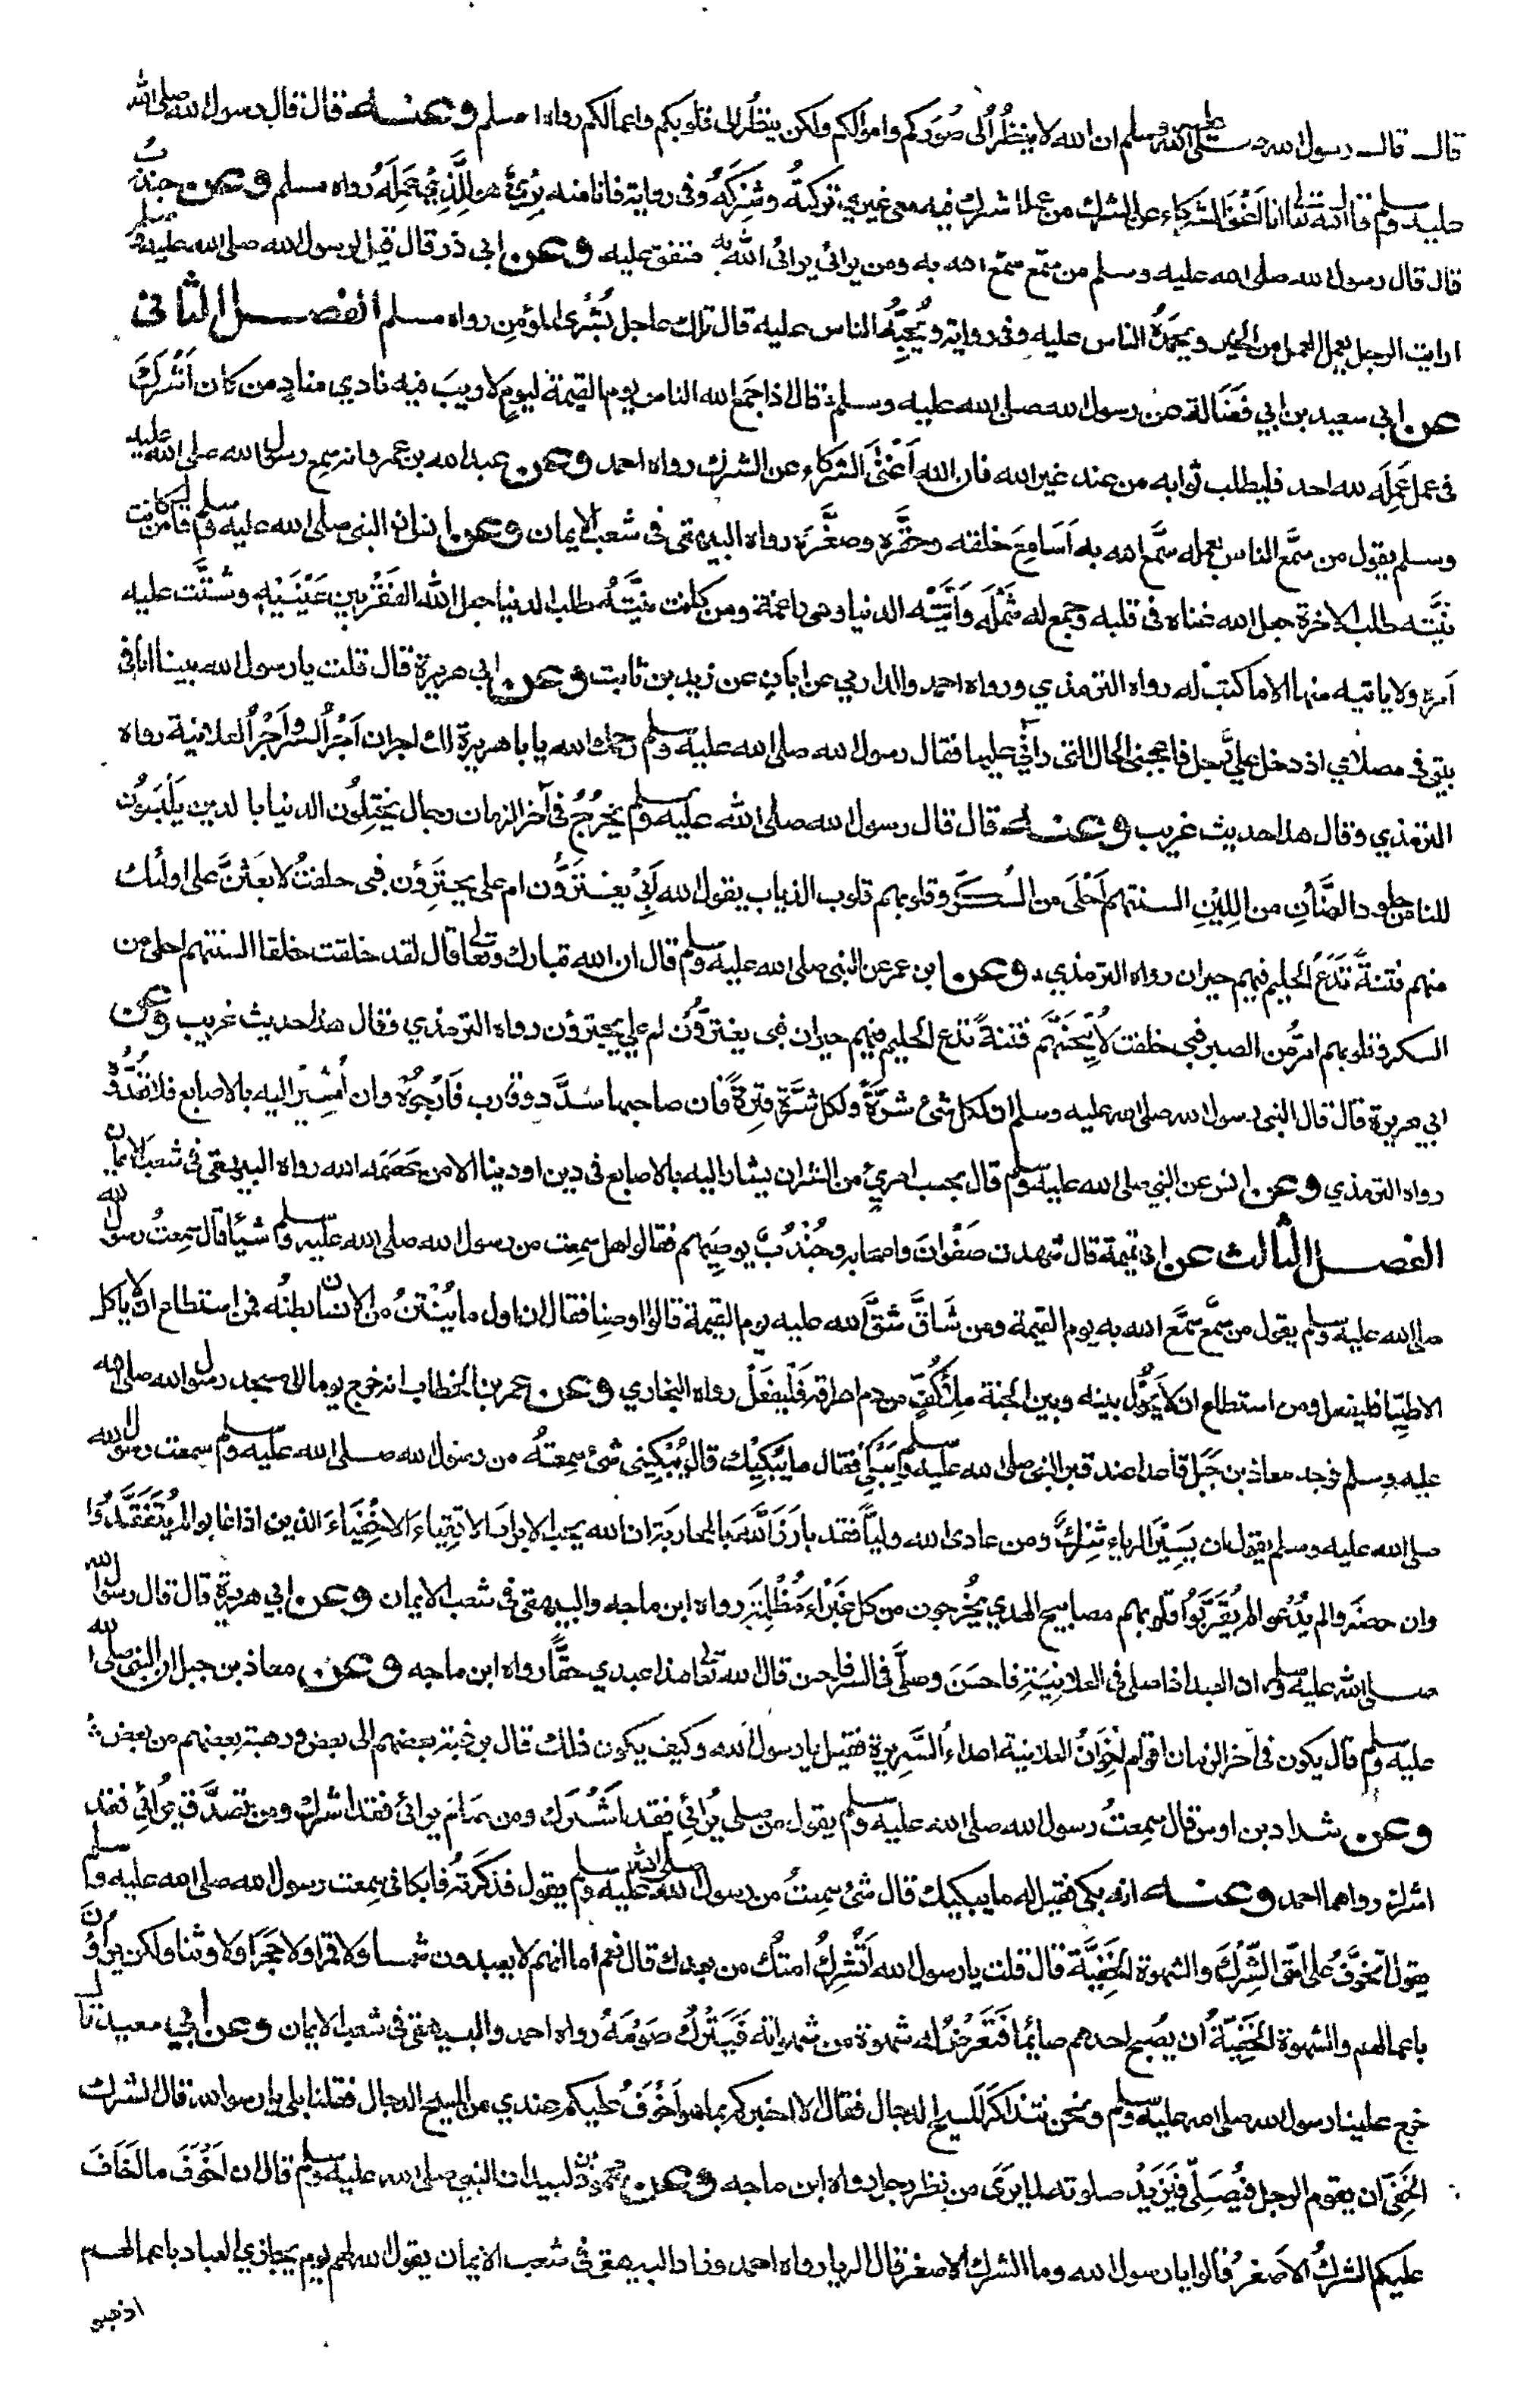 قال قال رسول الله صلى الله عليه وسلم ان الله لا ينظُرُ الى صُوَركم واموالكم ولكن ينظُر الى قلوبكم واعمالكم رواه مسلم وعنه قال قال رسول الله صلى الله
عليه وسلم قال الله تعالى انا اَغنى الشركاء عن الشرك من عمل عملا اشرك فيه معى غيري تركتُه وشِركَه وفى رواية فانا منه برئ هو للذي عَمِلَه رواه مسلم وعن جندب
قال قال رسول الله صلى الله عليه وسلم من سمّع سمّع الله به ومن يرائى يرائى الله به متفق عليه وعن ابي ذر قال قيل لرسول الله صلى الله عليه وسلم
ارايت الرجل يعمل العمل من الخير ويحمَدُه الناس عليه وفى رواية ويُحِبُّه الناس عليه قال تلك عاجل بُشْرى المؤمن رواه مسلم الفصل الثانى
عن ابي سعيد بن ابي فَضَالة عن رسول الله صلى الله عليه وسلم قال اذا جَمع الله الناس يوم القيمة ليوم لا ريبَ فيه نادي منادٍ من كان اَشْرَكَ
فى عمل عَمِلَه لله احد فليطلب ثوابه من عند غير الله فان الله اَغْنَى الشركاء عن الشرك رواه احمد وعن عبد الله بن عمرو انه سمع رسول الله صلى الله عليه
وسلم يقول من سَمَّع الناس بعمله سَمَّع الله به اَسَامِعَ خلقه وحقَّره وصغَّره رواه البيهقى فى شعب الايمان وعن انس ان النبى صلى الله عليه وسلم قال من كانت
نيَّته طلب الاخرة جعل الله غناه فى قلبه وجمع له شَمْلَه واَتَتْه الدنيا وهى راغمة ومن كانت نيَّتُه طلب الدنيا جعل الله الفقر بين عَيْنَيْهِ وشَتَّت عليه
اَمرَه ولا ياتيه منها الا ما كُتِبَ له رواه الترمذي ورواه احمد والدارمي عن ابان عن زيد بن ثابت وعن ابي هريرة قال قلت يا رسول الله بينا انا فى
بيتى فى مصلاي اذ دخل عليَّ رجل فاعجبنى الحال التى رآنى عليها فقال رسول الله صلى الله عليه وسلم رحمك الله يا ابا هريرة لك اجران اَجْرُ السر واَجْرُ العلانية رواه
الترمذي وقال هذا حديث غريب وعنه قال قال رسول الله صلى الله عليه وسلم يخرُجُ فى آخر الزمان رجال يَخْتِلُون الدنيا با لدين يَلْبَسُون
للناس جلود الضَّأنِ من اللِيْنِ السنتهم اَحْلى من السُكَّر وقلوبهم قلوب الذياب يقول الله اَبِيْ يغترُّون ام على يجترِؤن فبى حلفتُ لابعَثَنَّ على اولئك
منهم فتنةً تَدَعُ الحليم فيهم حيران رواه الترمذي وعن ابن عمر عن النبى صلى الله عليه وسلم قال ان الله تبارك وتعالى قال لقد خلقت خلقا السنتهم احلى من
السكر وقلوبهم امرُّ من الصبر فبى حلفت لاُتِيْحَنَّهم فتنةً تدع الحليم فيهم حيران فبى يغترُّون ام علي يجترؤن رواه الترمذي وقال هذا حديث غريب وعن
ابي هريرة قال قال النبى رسول الله صلى الله عليه وسلم ان لكل شئ شِرَّةً ولكل شِرَّةٍ فترةً فان صاحبها سَدَّد وقارب فَارْجُوْهُ وان اُشِيْرَ اليه بالاصابع فلا تَعُدُّوْهُ
رواه الترمذي وعن انس عن النبى صلى الله عليه وسلم قال بحسب امرئ من الشر ان يشار اليه بالاصابع فى دين او دنيا الا من عصَمَه الله رواه البيهقى فى شعب الايمان
الفصل الثالث عن ابى تميمة قال شهدت صفْوانَ واصحابه وجُنْدُبٌ يوصِيهم فقالوا هل سمِعت من رسول الله صلى الله عليه وسلم شيئا قال سمِعتُ رسول الله
صلى الله عليه وسلم يقول من سمَّع سمَّع الله به يوم القيمة ومن شَاقَّ شقَّ الله عليه يوم القيمة قالوا اوصِنا فقال ان اول ما يُنْتِنُ من الانسان بطنُه فمن استطاع ان لا ياكل
الا طيّبا فليفعل ومن استطاع ان لا يَحُوْل بينه وبين الجنة مِلْأُ كَفٍّ من دم اهراقه فَلْيفعَلْ رواه البخاري وعن عمر بن الخطاب انه خرج يوما الى مسجد رسول الله صلى الله
عليه وسلم فوجد معاذ بن جَبَل قاعدا عند قبر النبى صلى الله عليه وسلم يَبْكِيْ فقال ما يُبْكِيْك قال يُبْكِيْنى شئ سمِعتُه من رسول الله صلى الله عليه وسلم سمعت رسول الله
صلى الله عليه وسلم يقول ان يَسِيْرَ الرياء شِرْك ومن عادى لله وليًّا فقد بارَزَ اللهَ بالمحاربة ان الله يحب الابرارَ الاتقياءَ الاخْفِيَاءَ الذين اذا غابوا لم يُتَفَقَّدُوْا
وان حضروا لم يُدْعَوا ولم يُقَرَّبُوا قلوبهم مصابيح الهدي يخُرجون من كل غَبْرَاءَ مُظْلِمَةٍ رواه ابن ماجه والبيهقى فى شعب الايمان وعن ابي هريرة قال قال رسول الله
صلى الله عليه وسلم ان العبد اذا صلى فى العلانِيَةِ فاحسَنَ وصلّى فى السر فاحسن قال الله تعالى هذا عبدي حقًّا رواه ابن ماجه وعن معاذ بن جبل ان النبى صلى الله
عليه وسلم قال يكون فى آخر الزمان اقوام اِخْوَانُ العلانية اعداءُ السَّرِيرة فقيل يا رسول الله وكيف يكون ذلك قال برغبة بعضهم الى بعض ورهبة بعضهم من بعض
وعن شداد بن اوس قال سمِعتُ رسول الله صلى الله عليه وسلم يقول من صلى يُرَائِي فقد اَشْرَك ومن صَامَ يرائى فقد اشرك ومن تصدَّق يُرائِي فقد
اشرك رواهما احمد وعنه انه بكى فقيل له ما يبكيك قال شئ سمِعتُ من رسول الله صلى الله عليه وسلم يقول فذكرتُه فابكانى سمعت رسول الله صلى الله عليه وسلم
يقول اتخوَّفُ على امتى الشِّرْكَ والشهوة الخَفِيَّة قال قلت يا رسول الله اَتُشْرِكُ امتُك من بعدك قال نعم اَما انهم لا يعبدون شمسا ولا قمرا ولا حَجَرًا ولا وثنا ولكن يراؤُنَ
باعمالهم والشهوة الخَفِيَّةُ ان يُصبح احدهم صائمًا فَتَعْرِضُ له شهوة من شهواته فَيَتْرُكُ صَوْمَهُ رواه احمد والبيهقى فى شعب الايمان وعن ابي سعيد قال
خرج علينا رسول الله صلى الله عليه وسلم ونحن نتذاكَرُ المسيح الدجال فقال الا اخبركم بما هو اَخْوَفُ عليكم عندي من المسيح الدجال فقلنا بلى يا رسول الله قال الشرك
الخَفِىّ ان يقوم الرجل فيُصَلِّى فيَزِيْدُ صلوته لما يرَى من نظر رجل رواه ابن ماجه وعن محمود بن لبيد ان النبى صلى الله عليه وسلم قال ان اَخْوَفَ ما اَخَافُ
عليكم الشركُ الاَصغرُ قالوا يا رسول الله وما الشرك الاصغر قال الريا رواه احمد وزاد البيهقى فى شعب الايمان يقول الله لهم يوم يجازي العباد باعمالهم
اذهبوا